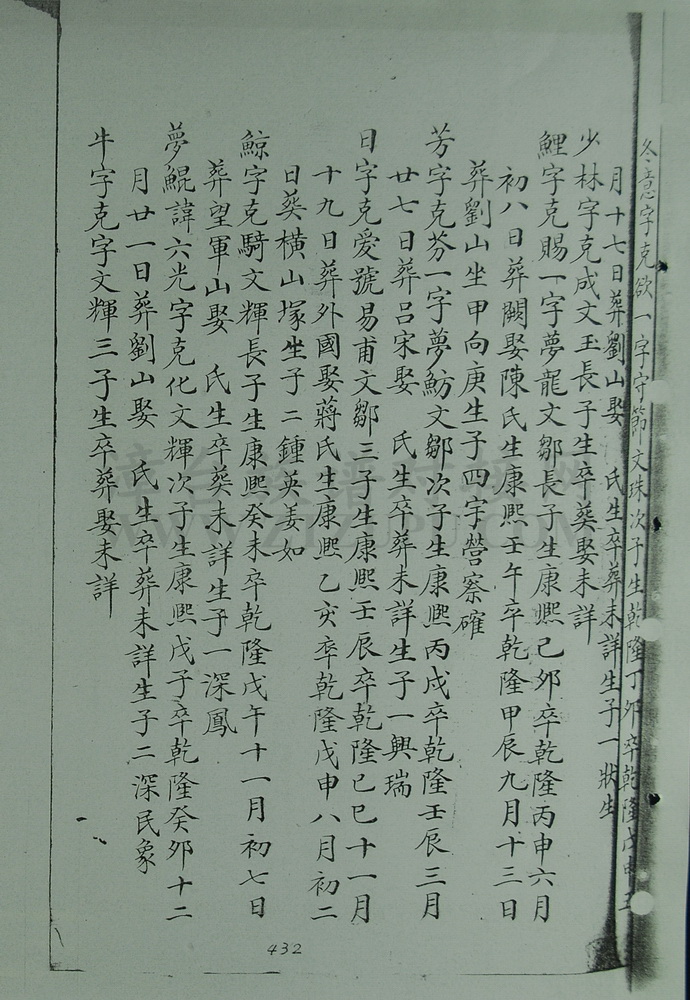 冬意字克欲一字守節文珠次子生乾隆丁卯卒乾隆戊申五
月十七日葬劉山娶　氏生卒葬未詳生子一狀生
少林字克成文玉長子生卒葬娶未詳
鯉字克賜一字夢龍文鄒長子生康熙己卯卒乾隆丙申六月
初八日葬闕娶陳氏生康熙壬午卒乾隆甲辰九月十三日
葬劉山坐甲向庚生子四宇營察確
芳字克芬一字夢魴文鄒次子生康熙丙戌卒乾隆壬辰三月
廿七日葬呂宋娶　氏生卒葬未詳生子一興瑞
日字克愛號易甫文鄒三子生康熙壬辰卒乾隆己巳十一月
十九日葬外國娶蔣氏生康熙乙亥卒乾隆戊申八月初二
日葬橫山塚生子二鍾英姜如
鯨字克騎文輝長子生康熙癸未卒乾隆戊午十一月初七日
葬望軍山娶　氏生卒葬未詳生子一深鳳
夢鯤諱六光字克化文輝次子生康熙戊子卒乾隆癸卯十二
月廿一日葬劉山娶　氏生卒葬未詳生子二深民象
牛字克字文輝三子生卒葬娶未詳
432
WWW.ZTZUPU.COM